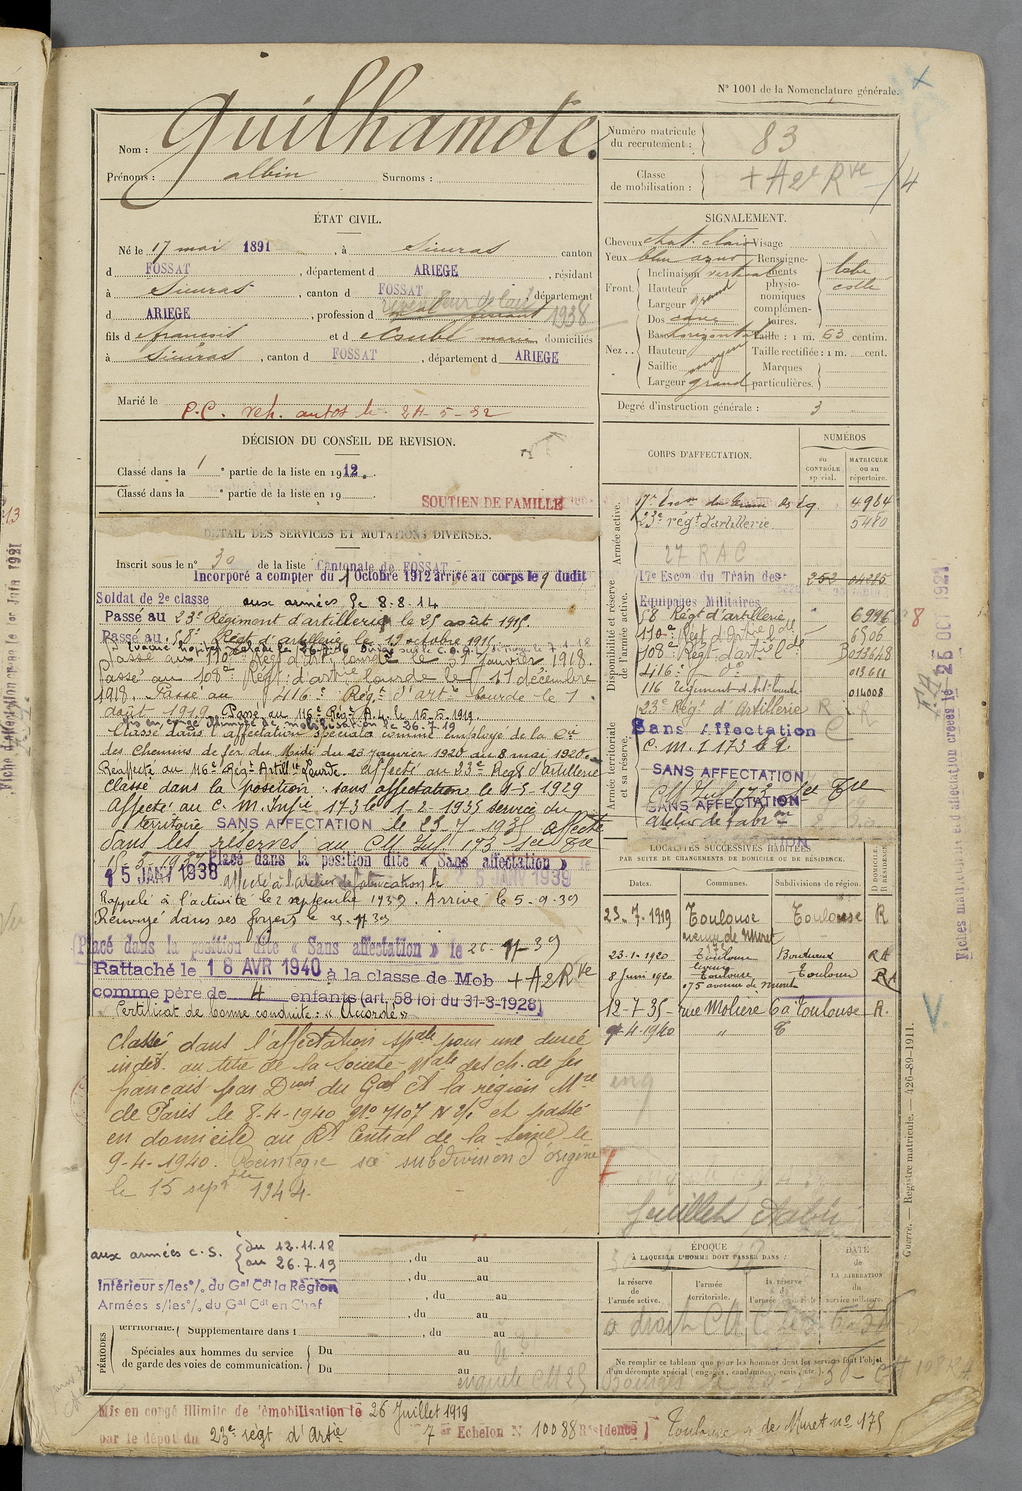 N° 1001 de la Nomenclature générale.
Nom : Guilhamote.
Prénoms : Albin Surnoms :
Numéro matricule du recrutement : 83
Classe de mobilisation : + A 2e Rve / 4
ÉTAT CIVIL.
Né le 17 mai 1891, à Sieuras canton
d FOSSAT, département d ARIEGE, résidant
à Sieuras, canton d FOSSAT, département
d ARIEGE, profession d revendeur de lait 1938
fils d François et d marie domiciliés
à Siéuras, canton d FOSSAT, département d ARIEGE
Marié le
P.C. rep. autos le 24-5-32
SIGNALEMENT.
Cheveux chat. clair Visage
Yeux bleu azur Renseignements physionomiques complémentaires. lobe collé
Front. Inclinaison vertical
Hauteur
Largeur grand
Nez.. Dos cave
Base horizontal Taille : 1 m. 63 centim.
Hauteur Taille rectifiée : 1 m. cent.
Saillie moyen Marques particulières.
Largeur grand
Degré d'instruction générale : 3
DÉCISION DU CONSEIL DE REVISION.
Classé dans la 1e partie de la liste en 1912.
Classé dans la e partie de la liste en 19
SOUTIEN DE FAMILLE
DÉTAIL DES SERVICES ET MUTATIONS DIVERSES.
Inscrit sous le n° 30 de la liste Cantonale de FOSSAT
Incorporé a compter du 1 Octobre 1912 arrivé au corps le 9 dudit
Soldat de 2e classe aux armées le 8.8.14
Passé au 23e Régiment d'artillerie le 25 août 1915.
Passé au 58e Régt d'artillerie le 12 octobre 1915.
Passé au 110e Régt d'Art. lourde le 1 janvier 1918.
Passé au 108e Régt d'artie lourde le 17 décembre
1918. Passé au 416e Régt d'artie lourde le 1
août 1919. Passé au 116e Régt A.L. le 15-5-1919.
Mis en congé illimité de démobilisation le 26-7-19
Classé dans l'affectation spéciale comme employé de la Cie
des chemins de fer du Midi du 23 janvier 1920 au 8 mai 1920.
Réaffecté au 116e Régt Artill. Lourde. affecté au 23e Régt d'artillerie
Classé dans la position sans affectation le 1-5-1929
Affecté au C. M. Infie 173 le 1-2-1935 service du
territoire SANS AFFECTATION le 23-7-1935 Affecté
dans les réserves au CM Inf 173 Sce Tre
15-3-1937 Placé dans la position dite « Sans affectation » le
15 JANV 1938 affecté à l'atelier de fabrication le 5 JANV 1939
Rappelé à l'activité le 2 septembre 1939. Arrivé le 5-9-39
Renvoyé dans ses foyers le 25-11-39
Placé dans la position dite « Sans affectation » le 26-11-39
Rattaché le 18 AVR 1940 à la classe de Mob + A 2e Rve
comme père de 4 enfants (art. 58 loi du 31-3-1928)
Certificat de bonne conduite : « Accordé »
Classé dans l'affection spale pour une durée
indét. au titre de la Société nale des ch. de fer
français par Dion du Gal Ct la région Mre
de Paris le 8-4-1940 No 7107 N 2/1 et passé
en domicile au Rt Central de la Seine le
9-4-1940. Réintègre sa subdivision d'origine
le 15 septbre 1944.
CORPS D'AFFECTATION.
NUMÉROS
au CONTRÔLE spécial.
MATRICULE ou au répertoire.
Armée active.
17e Escon du Train des Eq 4964
23e régt d'artillerie 5480
27 R A C
Disponibilité et réserve de l'armée active.
17e Escon du Train des Equipages Militaires 252 04285
58 Régt d'artillerie " 6996
110e Régt d'Artie lde 6506
108e Régt d'artie ld B013648
416e — do — 013611
116 régiment d'Art. lourde 014008
23e Régt d'Artillerie
Armée territoriale et sa réserve.
Sans Affectation
C. M. I 173
SANS AFFECTATION
CM Inf 173 Sce Tre
SANS AFFECTATION
atelier de fabron
LOCALITÉS SUCCESSIVES HABITÉES
PAR SUITE DE CHANGEMENTS DE DOMICILE OU DE RÉSIDENCE.
Dates. Communes. Subdivisions de région. D DOMICILE. R RÉSIDENCE.
23-7-1919 Toulouse avenue de Muret Toulouse R
23-1-1920 Toulouse Bordeaux RA
8 Juin 1920 Toulouse 175 avenue de Muret Toulouse RA
12-7-35 rue Molière 6 à Toulouse R.
9-4-1940 " T
aux armées c.s. { du 12.11.18 au 26.7.19
Intérieur s/les o/. du Gal Cdt la Région
Armées s/les o/. du Gal Cdt en Chef
, du au
, du au
, du au
, du au
PÉRIODES
territoriale. Supplémentaire dans l , du au
Spéciales aux hommes du service de garde des voies de communication. Du au
Du au
ÉPOQUE
À LAQUELLE L'HOMME DOIT PASSER DANS :
la réserve de l'armée active. l'armée territoriale. la réserve de l'armée
DATE de LA LIBÉRATION du service militaire.
Ne remplir ce tableau que pour les hommes dont les services font l'objet d'un décompte spécial (engagés, condamnés, omis, etc.).
Mis en congé illimité de démobilisation le 26 Juillet 1919
par le dépôt du 23e régt d'Artie 7er Echelon N° 10088 Résidence Toulouse de Muret no 175
Fiches matricule et d'affectation créées le 25 OCT 1921
Guerre. — Registre matricule. — 426-89-1911.